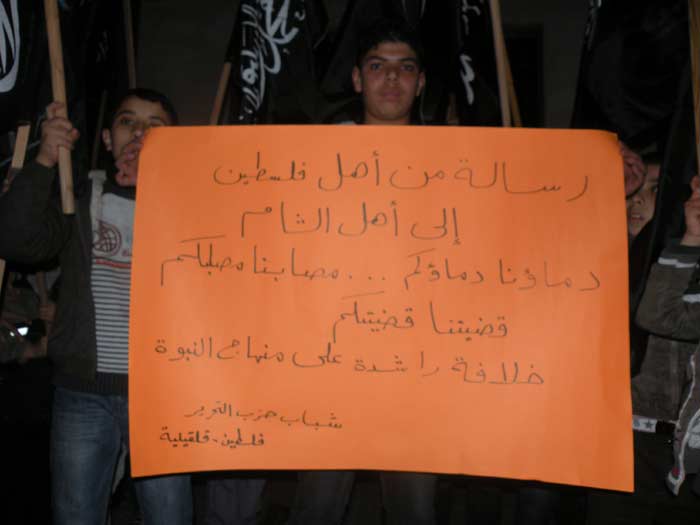 رسالة من أهل فلسطين
إلى أهل الشام
دماؤنا دماؤكم ... مصابنا مصابكم
قضيتنا قضيتكم
خلافة راشدة على منهاج النبوة
شباب حزب التحرير
فلسطين - قلقيلية